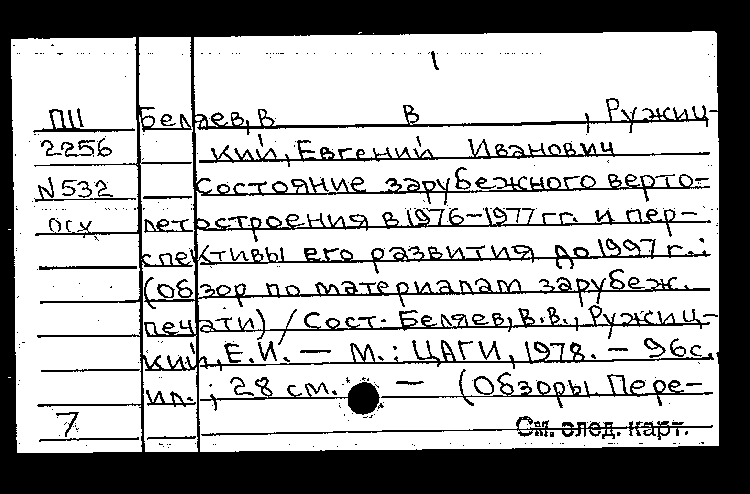 1
ПII Беляев, В В , Ружиц-
2256 кий, Евгений Иванович
N532 Состояние зарубежного верто-
осу летостроения в 1976-1977 гг. и пер-
спективы его развития до 1997 г.:
(Обзор по материалам зарубеж.
печати) / Сост. Беляев, В.В., Ружиц-
кий, Е.И. — М.: ЦАГИ, 1978. — 96с.,
ил.; 28 см. — (Обзоры. Пере-
7 См. след. карт.